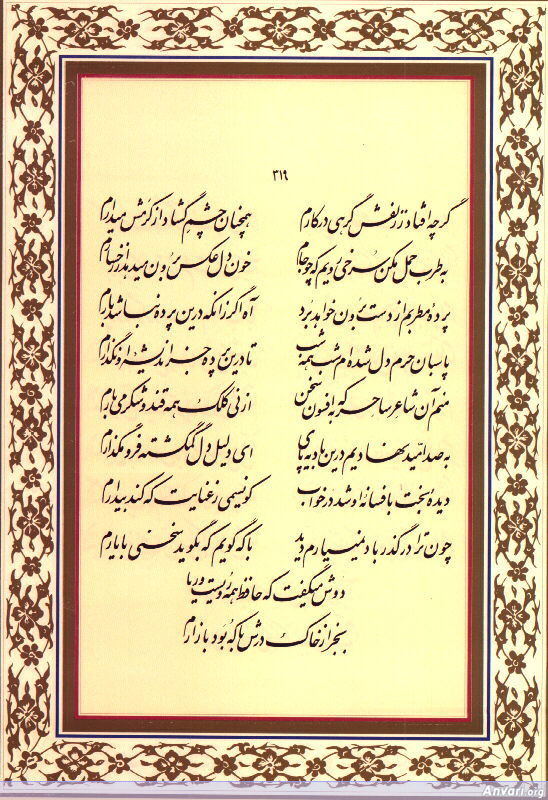 ۳۱۹
گرچه افتاد ز زلفش گرهی در کارم همچنان چشم گشاد از کرمش میدارم
به طرب حمل مکن سرخی رویم که چو جام خون دل عکس برون میدهد از رخسارم
پردهٔ مطربم از دست برون خواهد برد آه اگر زانکه درین پرده نباشد بارم
پاسبان حرم دل شده ام شب همه شب تا درین پرده جز اندیشه او نگذارم
منم آن شاعر ساحر که به افسون سخن از نی کلک همه قند و شکر می بارم
به صد امید نهادیم درین بادیه پای ای دلیل دل گمگشته فرو مگذارم
دیدهٔ بخت به افسانهٔ او شد در خواب کو نسیمی ز عنایت که کند بیدارم
چون ترا در گذر باد نمییارم دید با که گویم که بگوید سخنی با یارم
دوش میگفت که حافظ همه رویست و ریا
بجز از خاک درش با که بود بازارم
Anvari.org